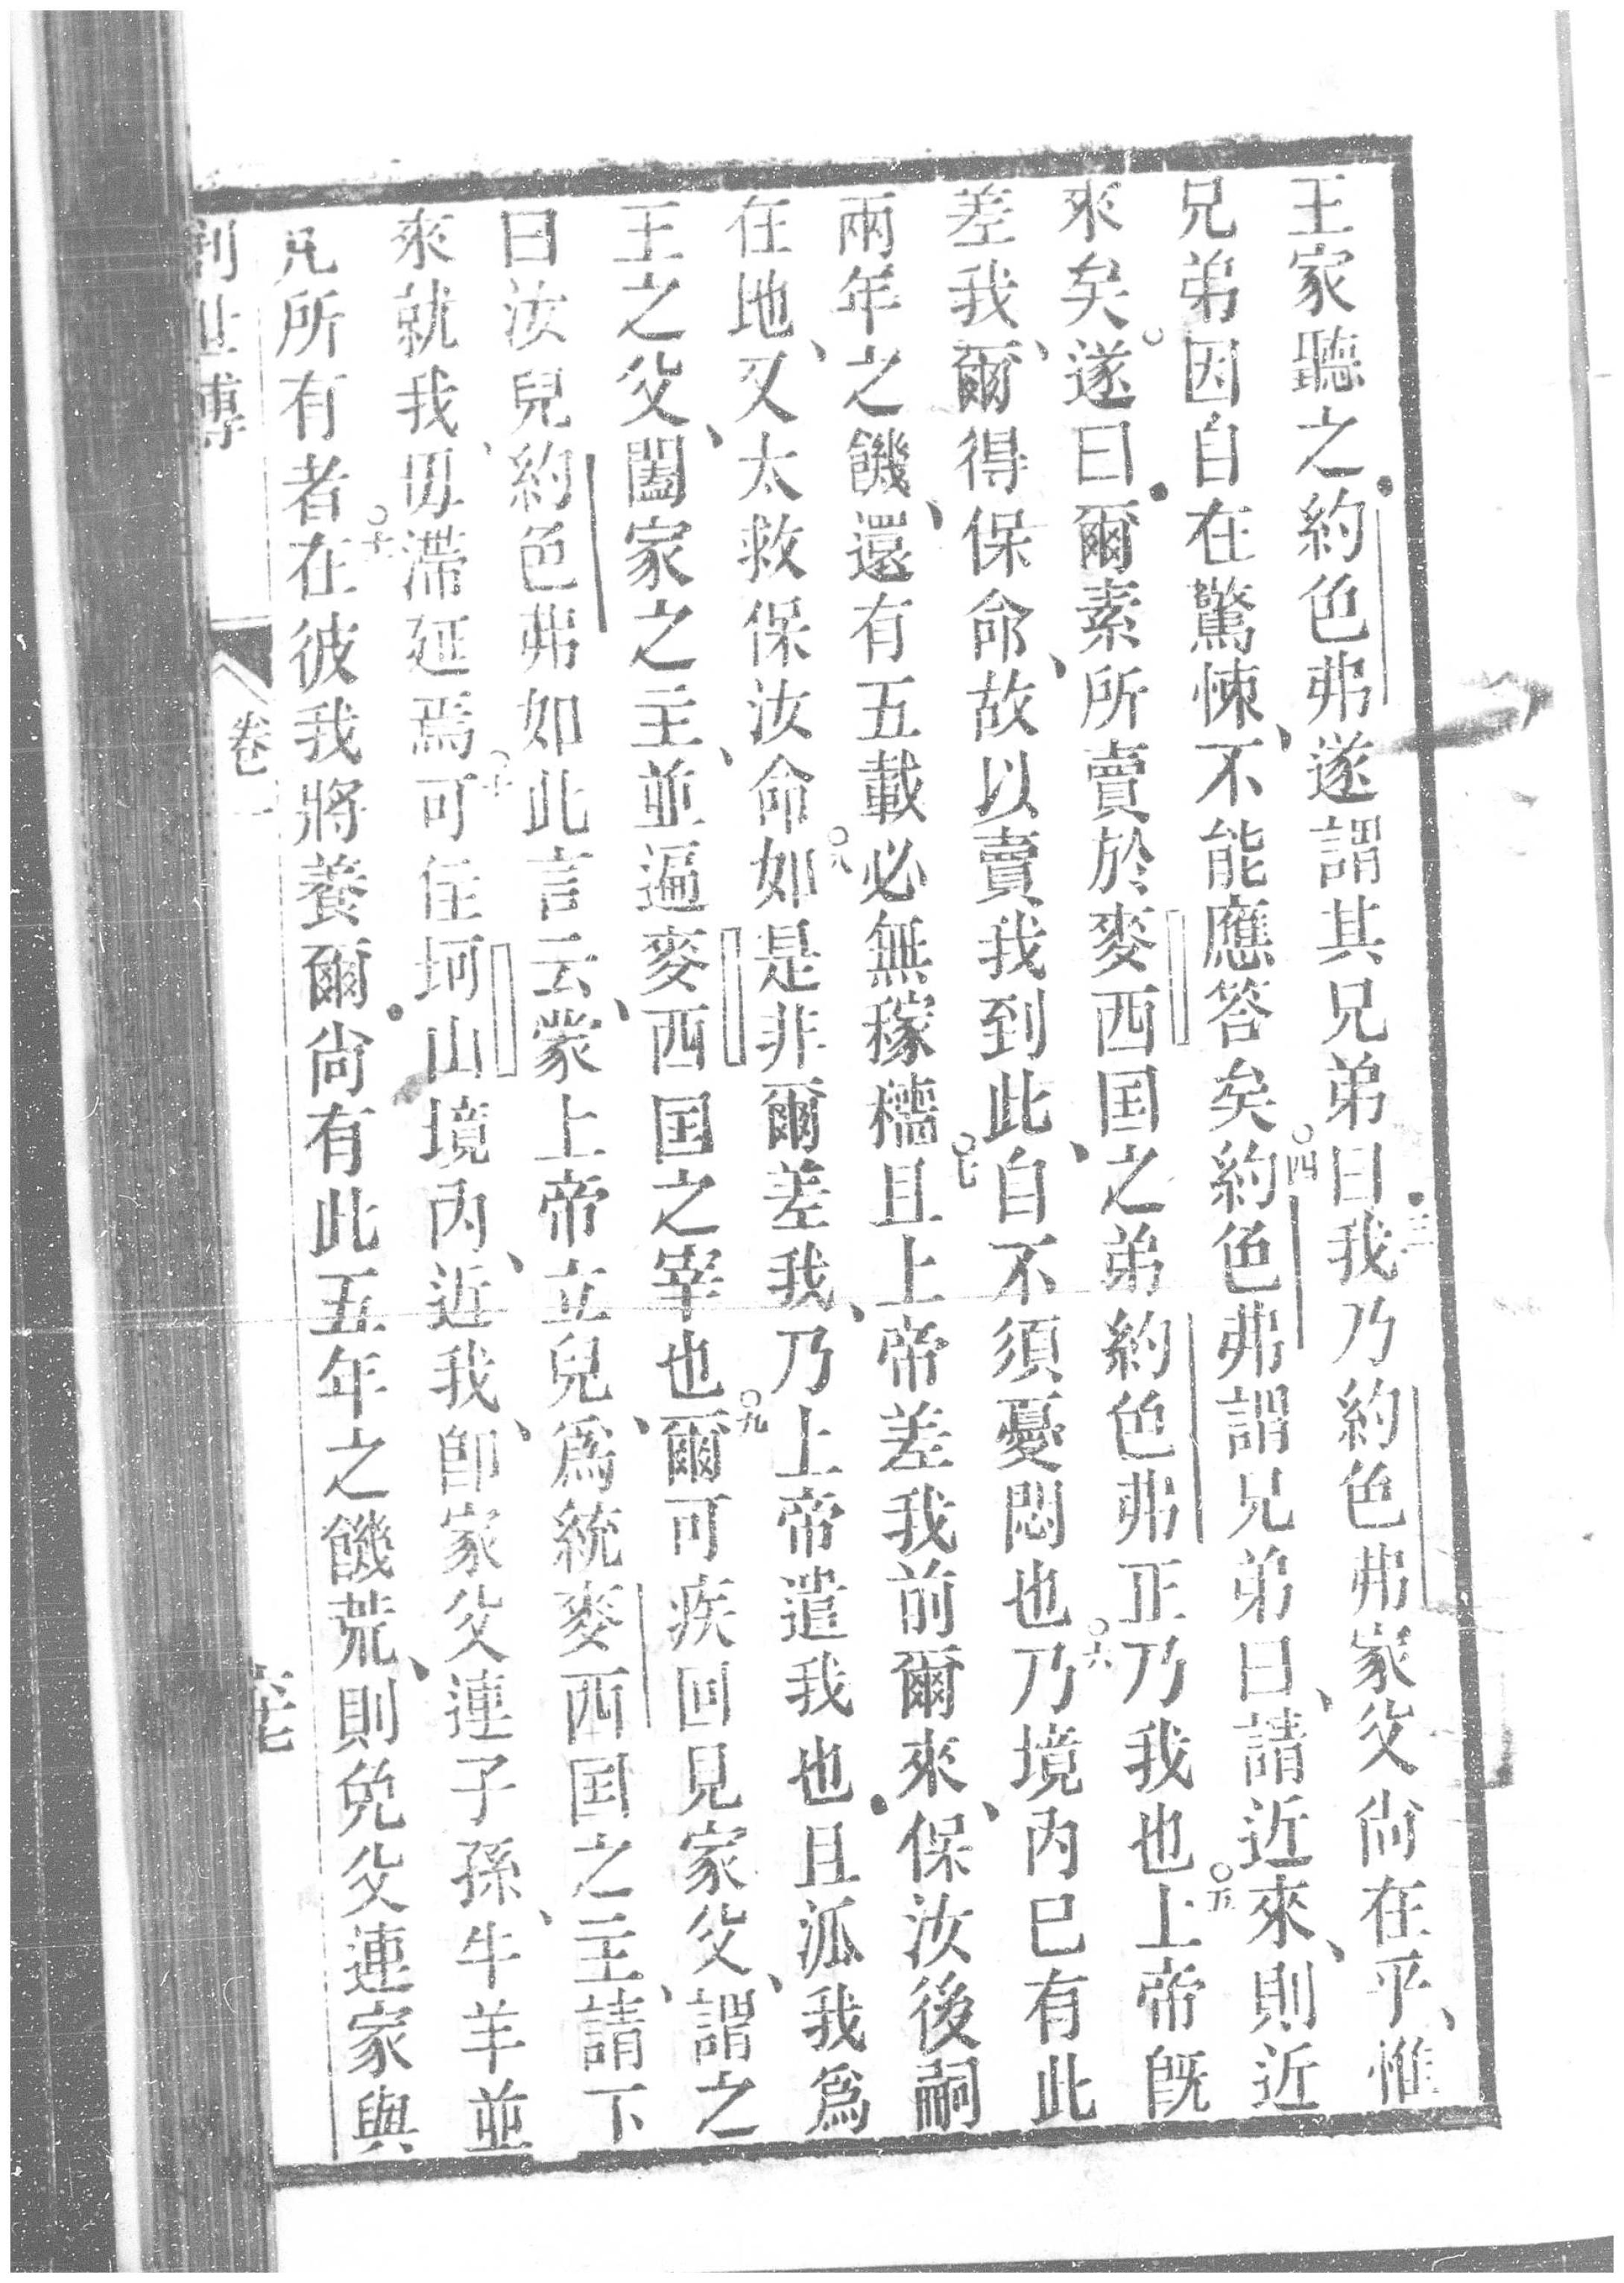 王家聽之約色弗遂謂其兄弟曰三我乃約色弗家父尚在乎惟
兄弟因自在驚悚不能應答矣四約色弗謂兄弟曰請近來則近
來矣遂曰爾素所賣於麥西国之弟約色弗正乃我也五上帝既
差我爾得保命故以賣我到此自不須憂悶也六乃境內已有此
兩年之饑還有五載必無稼穡七且上帝差我前爾來保汝後嗣
在地又太救保汝命八如是非爾差我乃上帝遣我也且泒我為
王之父闔家之主並逼麥西国之宰也九爾可疾回見家父謂之
曰汝兒約色弗如此言云蒙上帝立兒為統麥西国之主請下
來就我毋滯延焉十可住坷山境內近我卽家父連子孫牛羊並
凡所有者十在彼我將養爾尚有此五年之饑荒則免父連家與
創世傳 卷一